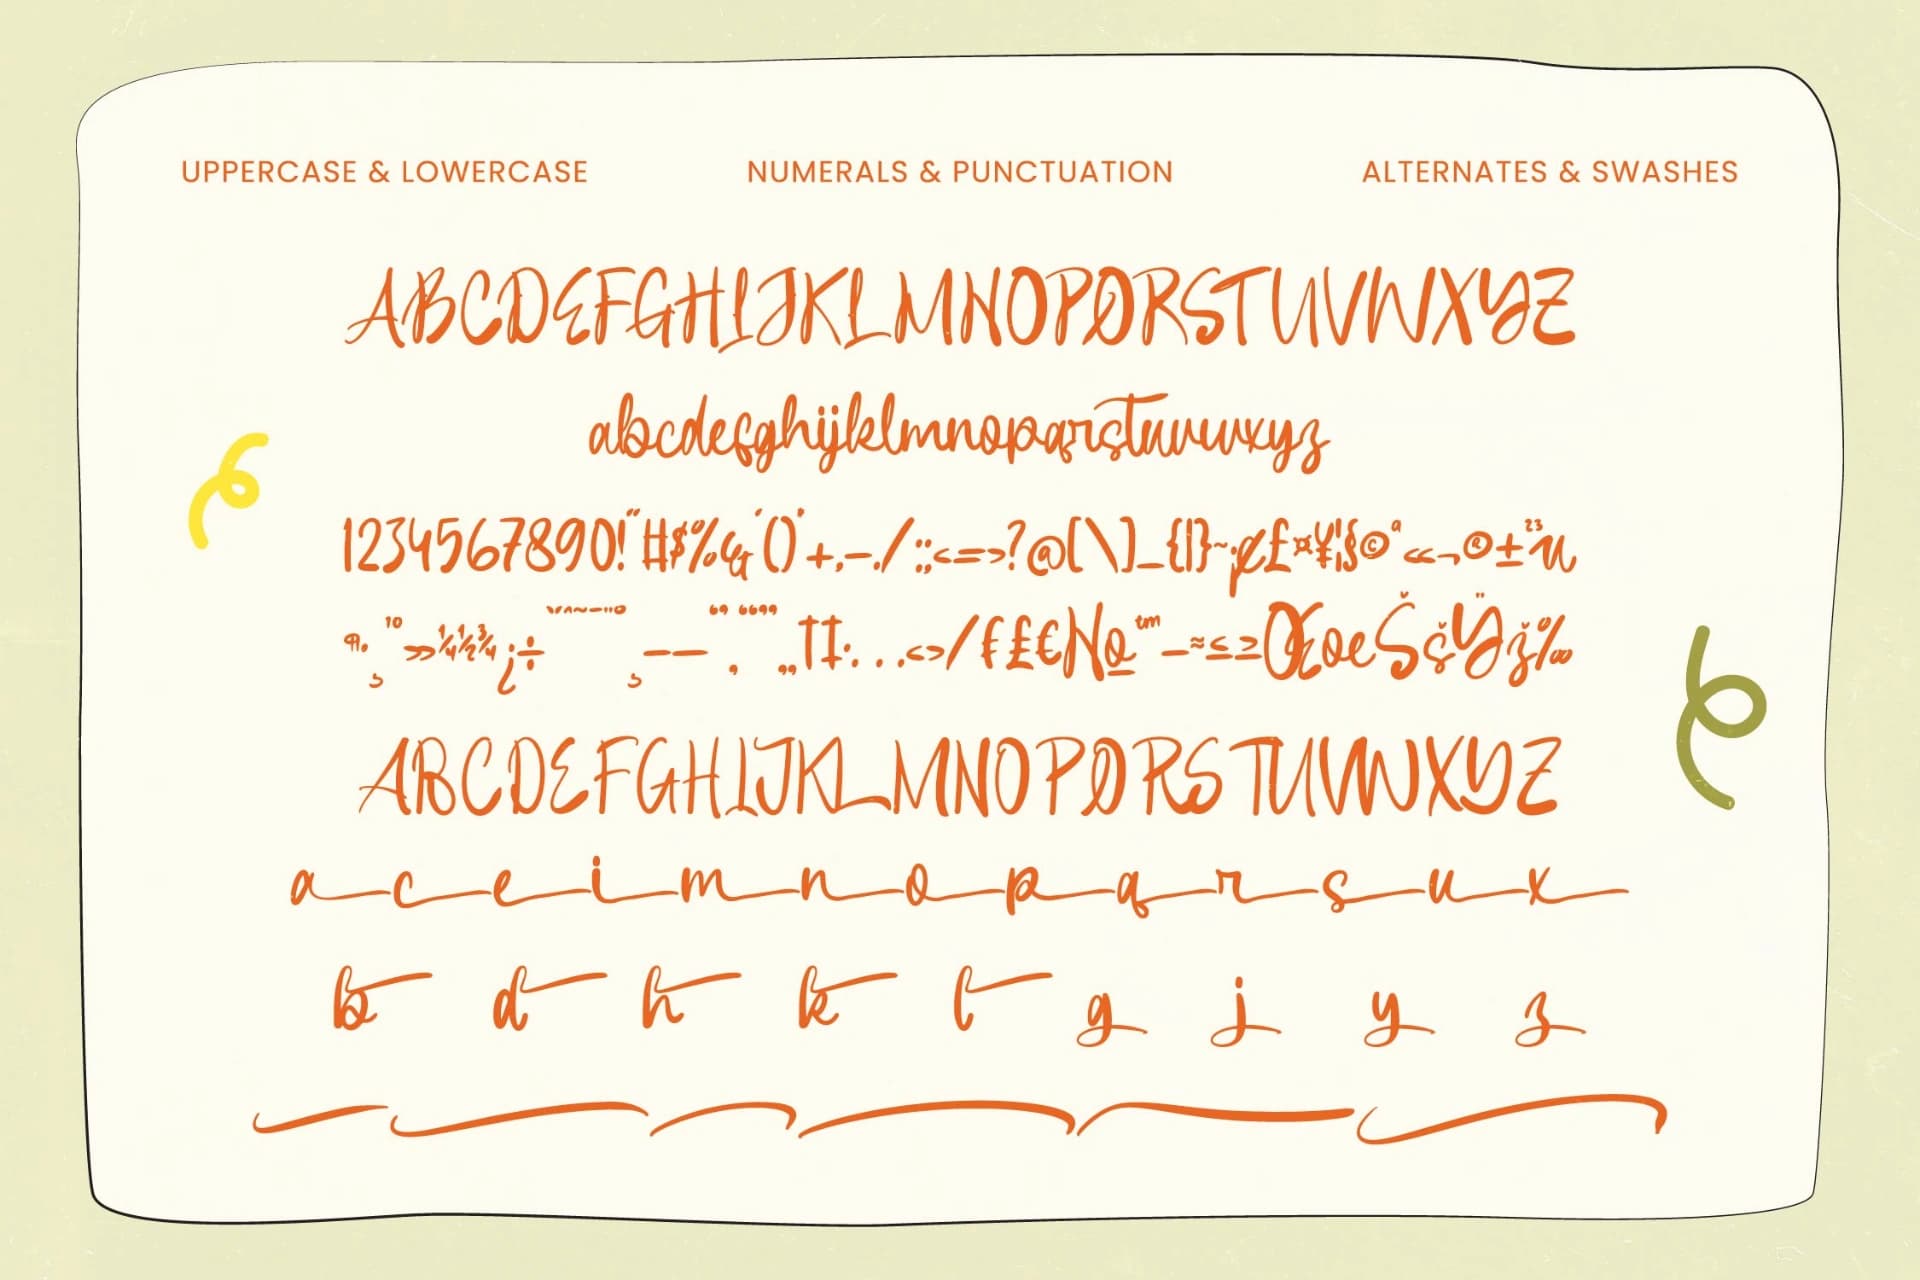 UPPERCASE & LOWERCASE
NUMERALS & PUNCTUATION
ALTERNATES & SWASHES
ABCDEFGHIJKLMNOPQRSTUVWXYZ
abcdefghijklmnopqrstuvwxyz
1234567890!"#$%&'()*+,-./:;<=>?@[\]_{|}~¡¢£¤¥¦§©ª«¬®±²³µ
¶·¸¹º»¼½¾¿÷ˇ
–—‚„†‡•…‹›⁄₣£€№™−≈≤≥ŒœŠšŸž‰
ABCDEFGHIJKLMNOPQRSTUVWXYZ
a c e i m n o p q r s u x
b d h k l g j y z